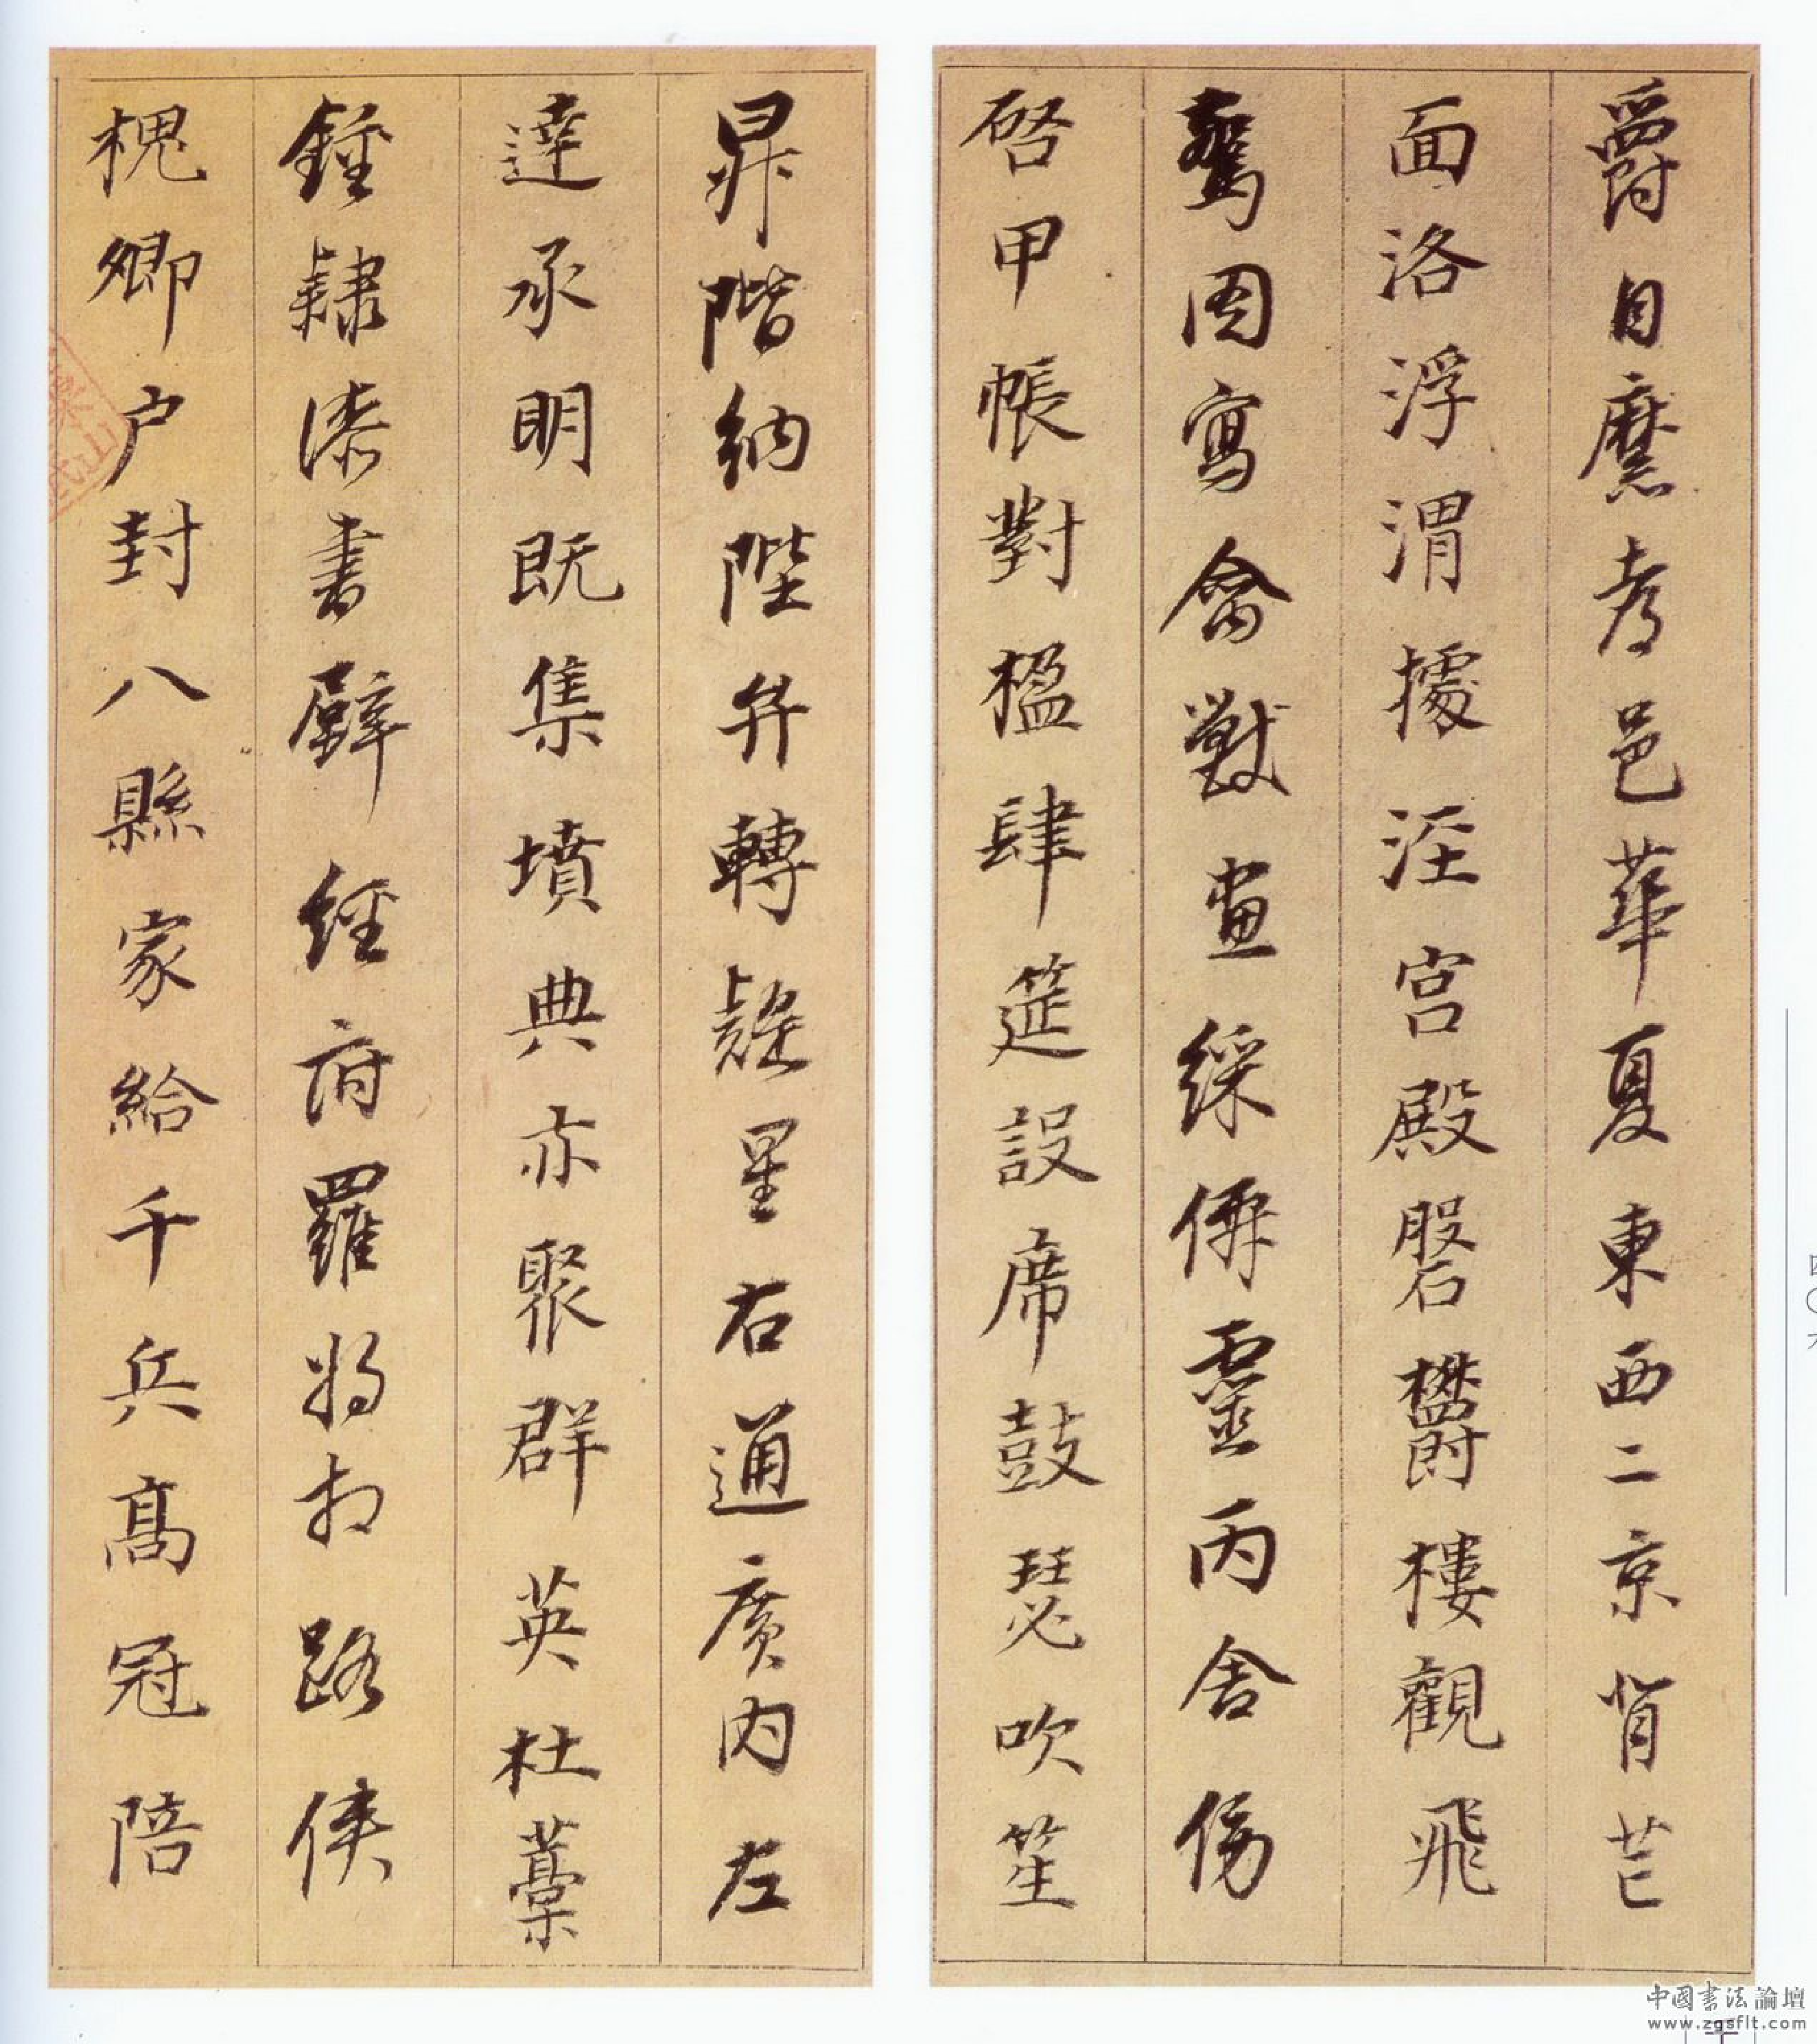 爵自縻都邑華夏東西二京背芒
面洛浮渭據涇宮殿磐欝樓觀飛
驚圖寫禽獸畫綵僊靈丙舍傍
啓甲帳對楹肆筵設席鼓瑟吹笙
昇階納陛弁轉疑星右通廣內左
達承明既集墳典亦聚群英杜藁
鍾隸漆書壁經府羅將相路俠
槐卿户封八縣家給千兵高冠陪
中國書法論壇
www.zgsflt.com